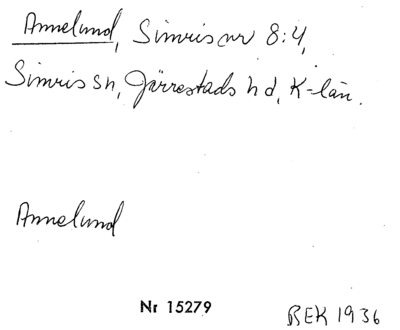 Annelund, Simris nr 8:4,
Simris sn, Järrestads hd, K-län.
Annelund
Nr 15279
REK 1936